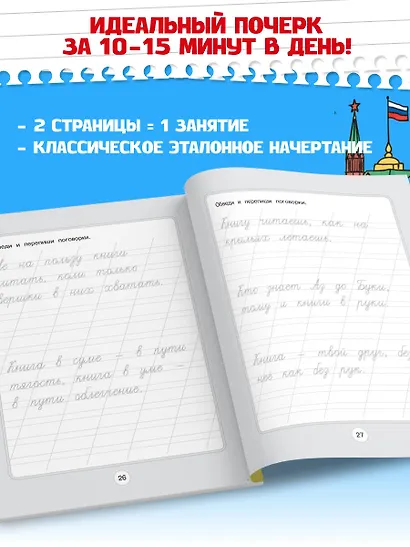 ИДЕАЛЬНЫЙ ПОЧЕРК
ЗА 10-15 МИНУТ В ДЕНЬ!
- 2 СТРАНИЦЫ = 1 ЗАНЯТИЕ
- КЛАССИЧЕСКОЕ ЭТАЛОННОЕ НАЧЕРТАНИЕ
и перепиши поговорки.
на пользу книги
читать, коли только
вершки в них хватать.
Книга в суме – в пути
тягость, книга в уме –
в пути облегчение.
26
Обведи и перепиши поговорки.
Книгу читаешь, как на
крыльях летаешь.
Кто знает Аз да Буки,
тому и книги в руки.
Книга – твой друг, без
неё как без рук.
27